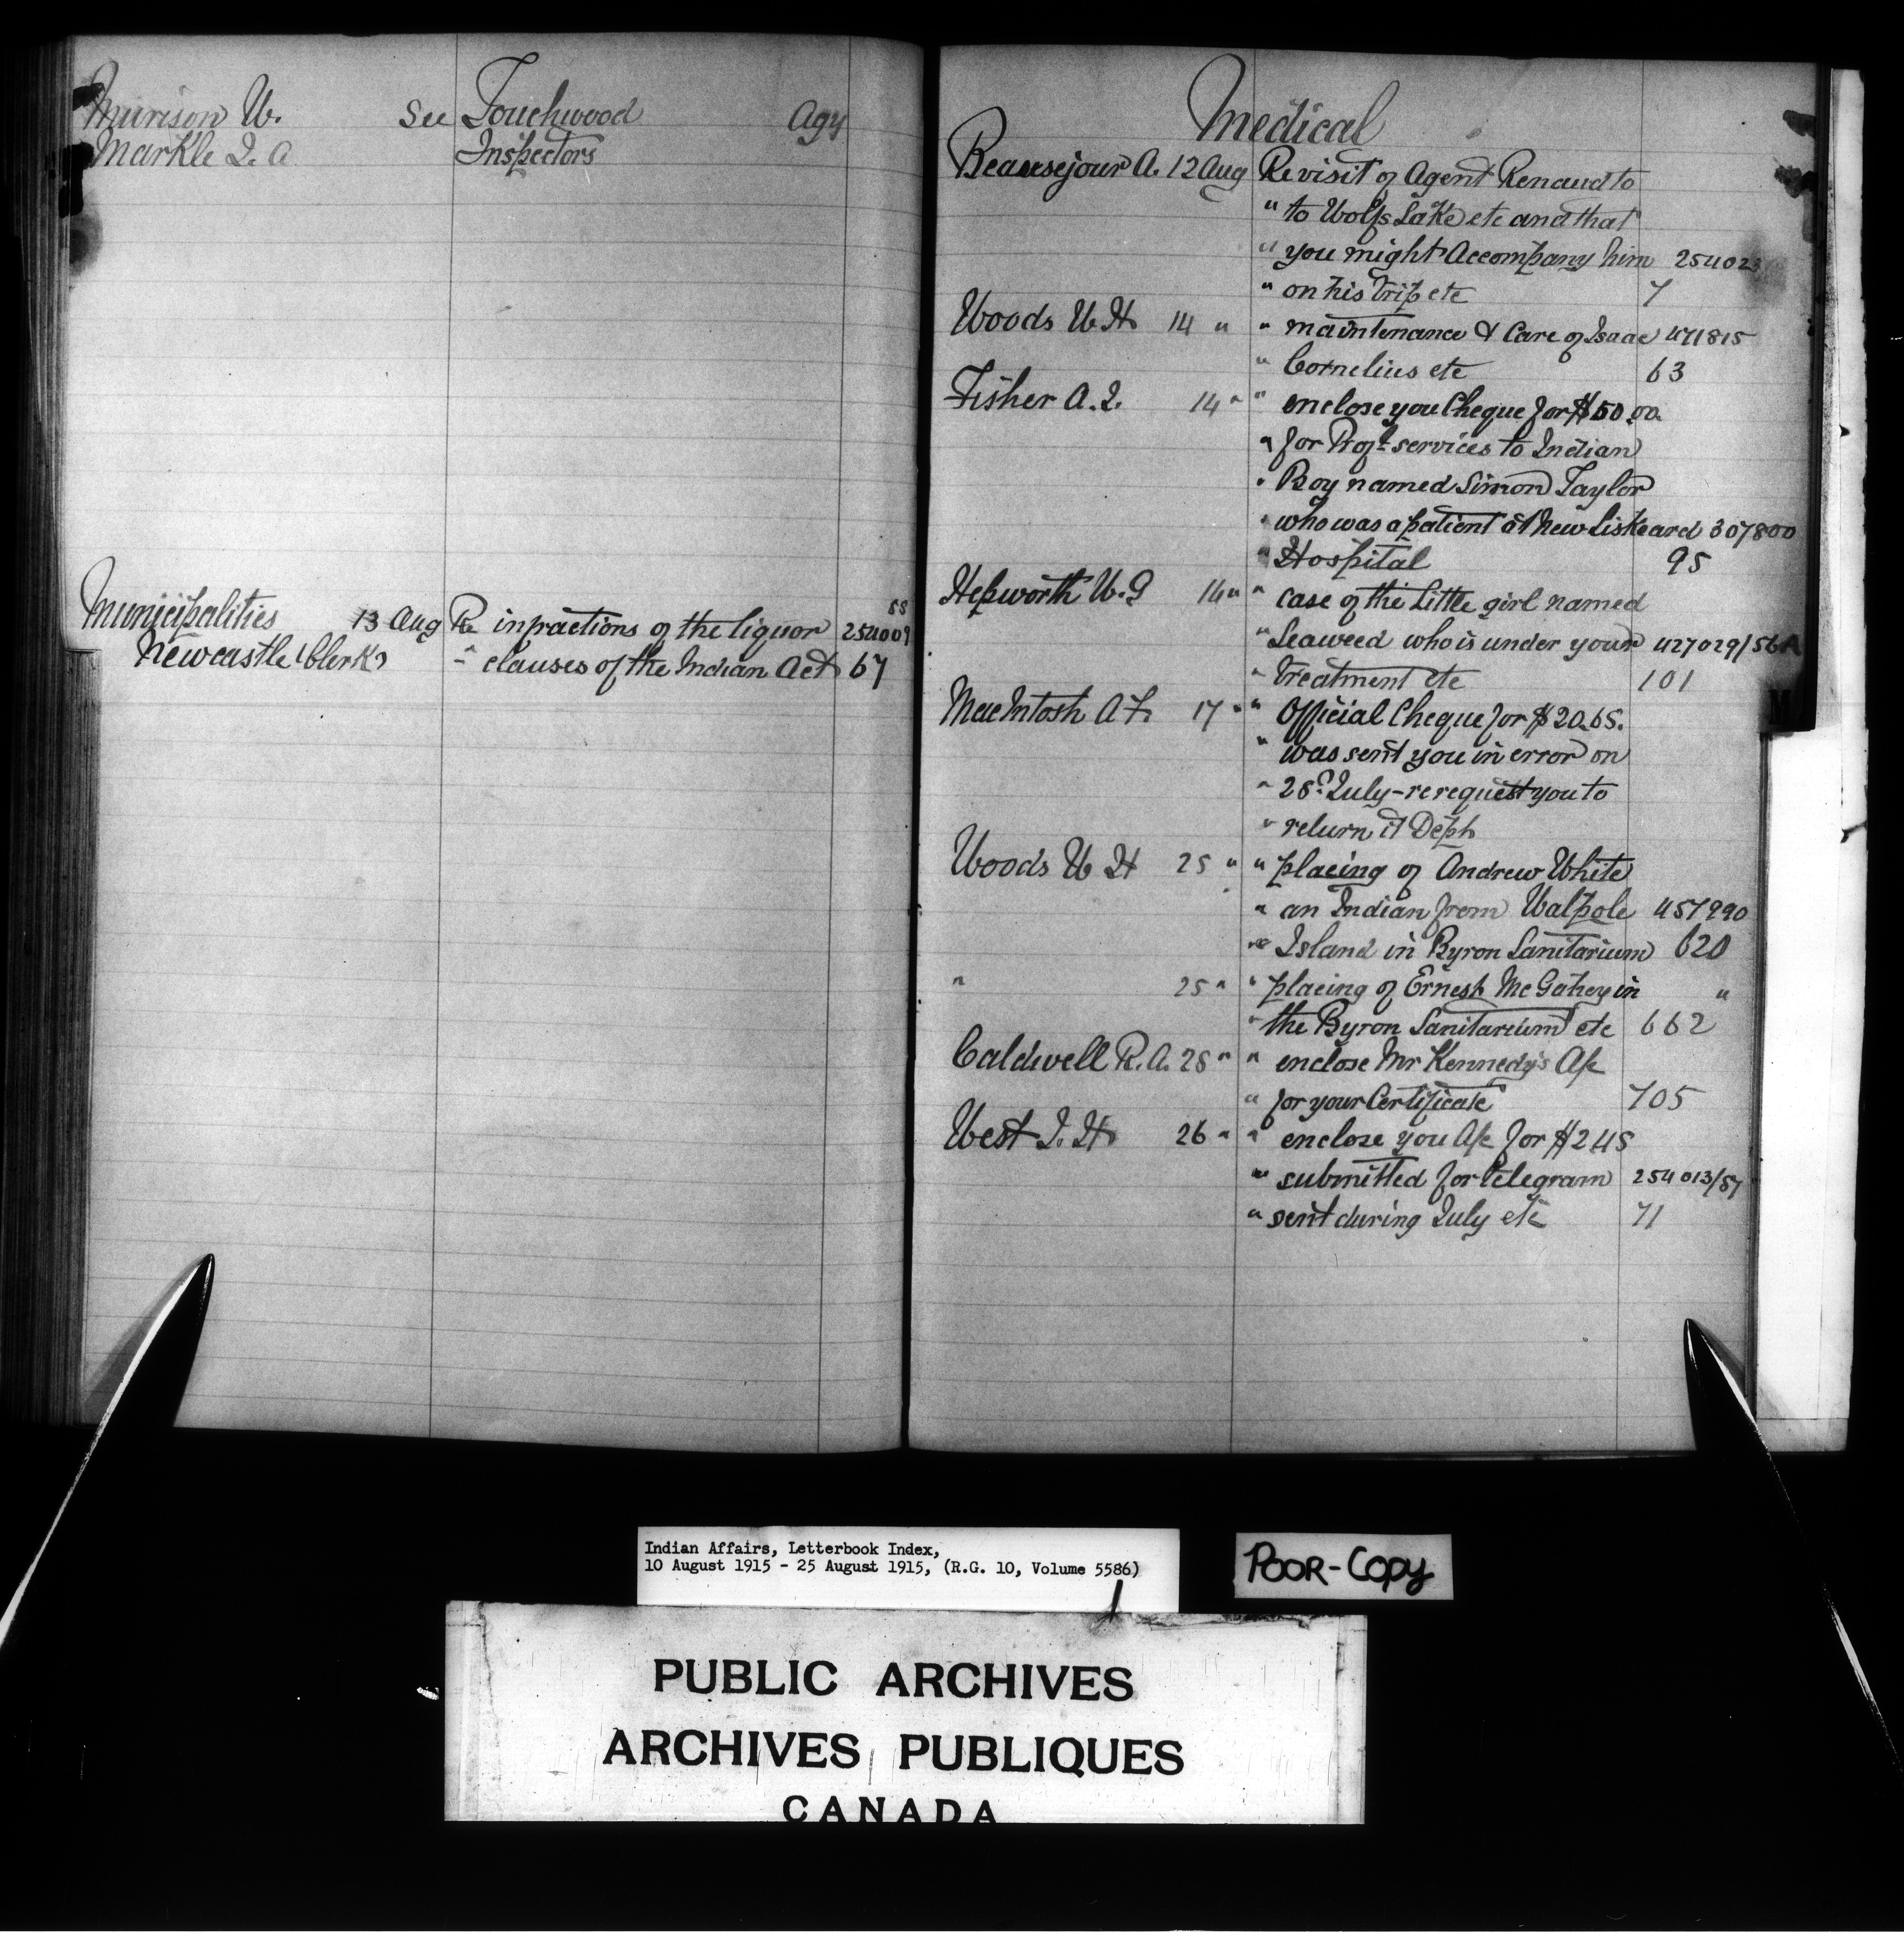 Murison W. See Touchwood Agy
Markle J. A Inspectors
Municipalities 13 Aug Re infractions of the liquor 254009 55
Newcastle (Clerk) " clauses of the Indian Act 67
Medical
Beausejour A. 12 Aug Re visit of Agent Renaud to
" to Wolfs Lake etc and that
" you might Accompany him 25402
" on his trip etc 7
Woods W. H 14 " " maintenance & Care of Isaac 471815
" Cornelius etc 63
Fisher A. J. 14 " " enclose you Cheque for $50.00
" for Prof. services to Indian
" Boy named Simon Taylor
" who was a patient at New Liskeard 307800
" Hospital 95
Hepworth W. G 14 " " case of the little girl named
" Seaweed who is under your 427029/56A
" treatment etc 101
MacIntosh A F. 17 " " Official Cheque for $20.65.
" was sent you in error on
" 28th July - re request you to
" return it Dept
Woods W H 25 " " placing of Andrew White
" an Indian from Walpole 457990
" Island in Byron Sanitarium 620
" 25 " " placing of Ernest McGahey in "
" the Byron Sanitarium etc 662
Caldwell R. A. 25 " " enclose Mr Kennedy's A/c
" for your Certificate 705
West J. H. 26 " " enclose you A/c for $2.45
" submitted for telegram 254013/57
" sent during July etc 71
M
Indian Affairs, Letterbook Index,
10 August 1915 - 25 August 1915, (R.G. 10, Volume 5586)
POOR-COPY
PUBLIC ARCHIVES
ARCHIVES PUBLIQUES
CANADA